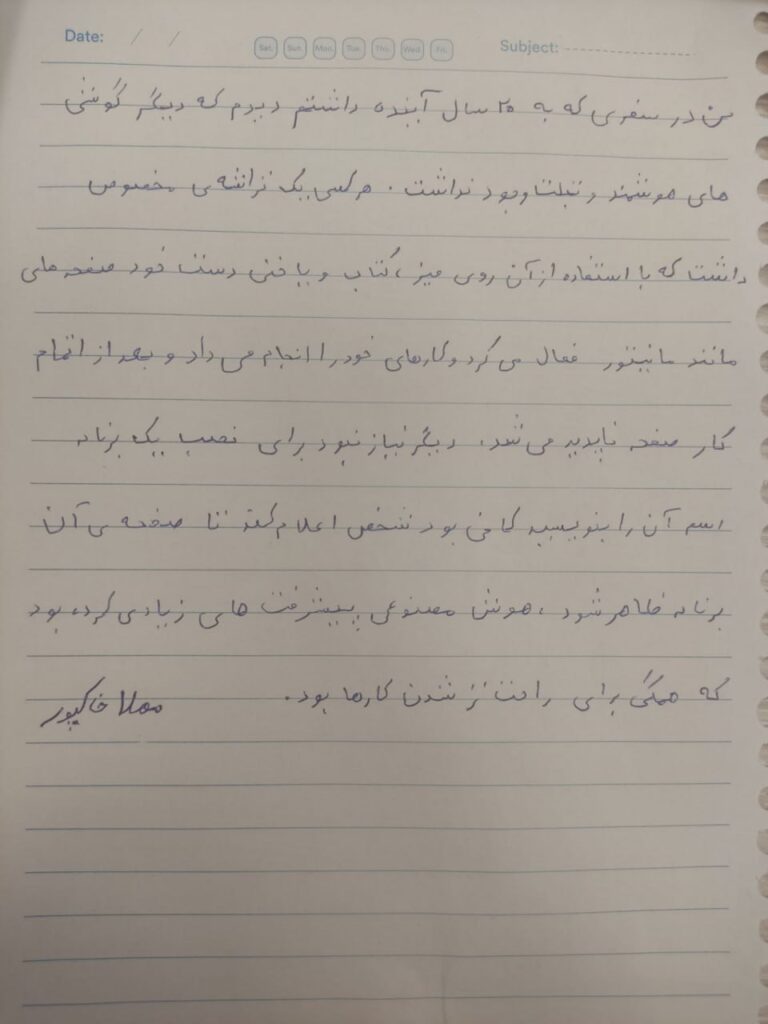 Date: / /
Sat. Sun. Mon. Tue. Thu. Wed Fri.
Subject:
من در سفری که به ۲۰ سال آینده داشتم دیدم که دیگر گوشی
های هوشمند و تبلت وجود نداشت. هر کسی یک تراشه ی مخصوص
داشت که با استفاده از آن روی میز، کتاب و یا حتی دست خود صفحه های
مانند مانیتور فعال می کرد و کارهای خود را انجام می داد و بعد از اتمام
کار صفحه ناپدید می شد. دیگر نیاز نبود برای نصب یک برنامه
اسم آن را بنویسید کافی بود شخص اعلام کند تا صفحه ی آن
برنامه ظاهر شود. هوش مصنوعی پیشرفت های زیادی کرده بود
که همگی برای راحت تر شدن کارها بود. مهلا خاکپور